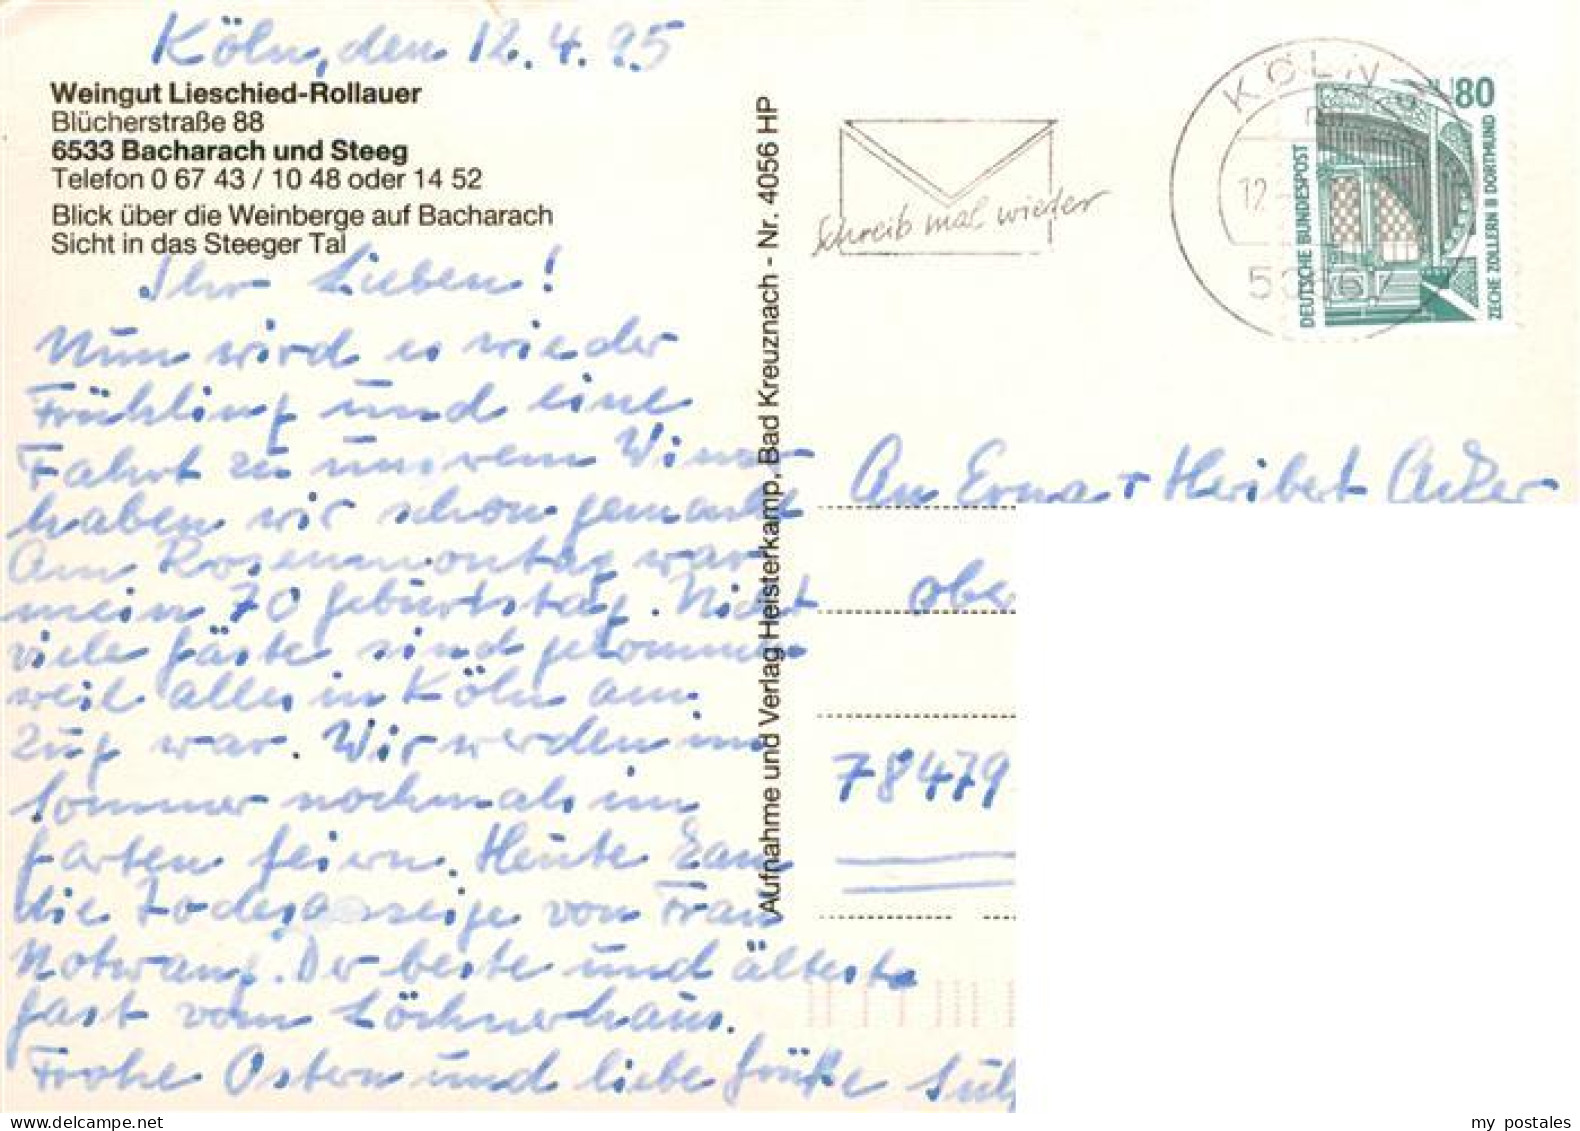 Köln, den 12.4.95
Weingut Lieschied-Rollauer
Blücherstraße 88
6533 Bacharach und Steeg
Telefon 0 67 43 / 10 48 oder 14 52
Blick über die Weinberge auf Bacharach
Sicht in das Steeger Tal
Ihr Lieben!
Nun wird es wieder
Frühling und eine
Fahrt zu unsrem Winzer
haben wir schon gemacht
Am Rosenmontag war
mein 70 Geburtstag. Nicht
viele Gäste sind gekommen
weil alles in Köln am
Zug war. Wir werden im
Sommer nochmals im
Garten feiern. Heute kam
die Todesanzeige von Frau
Notwang. Der beste und älteste
Gast vom Löchnerhaus.
Frohe Ostern und liebe Grüße
Aufnahme und Verlag Heisterkamp, Bad Kreuznach - Nr. 4056 HP
Schreib mal wieder
KÖLN
12
80
DEUTSCHE BUNDESPOST
ZECHE ZOLLERN II DORTMUND
An Erna + Heribert Acker
Ober
78479
my postales
delcampe.net